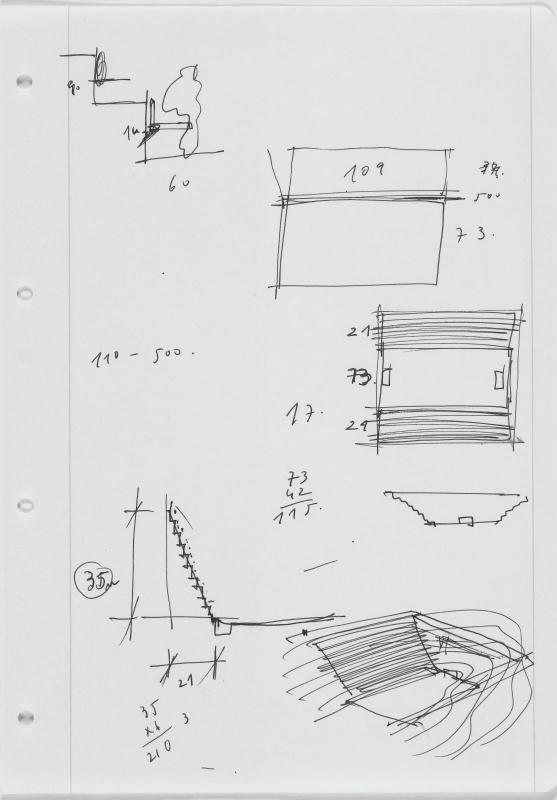 90
14
60
109
500
73.
21
110 - 500.
73
17.
21
73
42
115.
35
21
35
x6
3
210